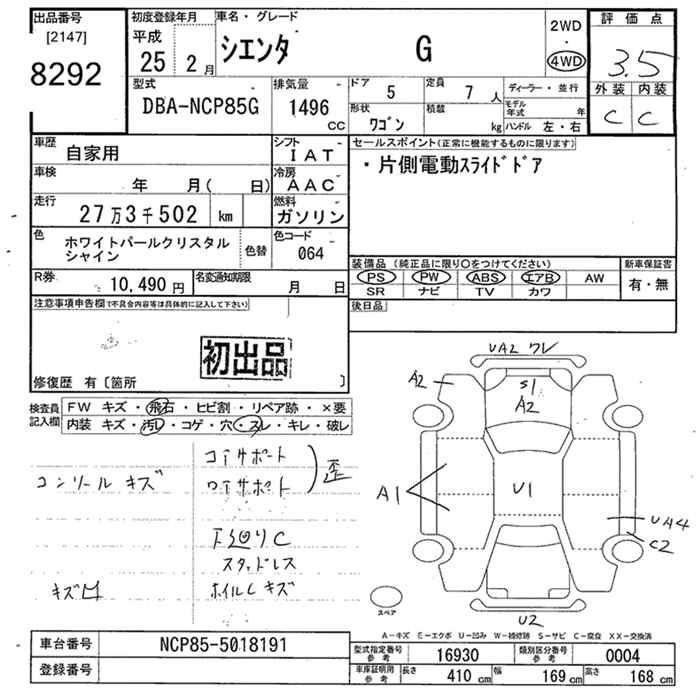 出品番号 初度登録年月 車名・グレード 評価点
[2147] 平成 2WD
8292 25 2月 シエンタ G ・ 3.5
4WD
型式 排気量 ドア 5 定員 7人 ディーラー・並行 外装 内装
DBA-NCP85G 1496 CC 形状 ワゴン 積載 kg モデル年式 年 C C
ハンドル 左・右
車歴 自家用 シフト IAT セールスポイント(正常に機能するものに限ります)
車検 年 月( 日) 冷房 AAC ・片側電動スライドドア
走行 27万3千502 km 燃料 ガソリン
色 ホワイトパールクリスタルシャイン 色替 色コード 064
装備品(純正品に限り○をつけてください) 新車保証書
R券 10,490円 名変通知期限 月 日 PS PW ABS エアB AW 有・無
SR ナビ TV カワ
注意事項申告欄(で不具合内容等は具体的に記入して下さい) 後日品
初出品
修復歴 有〔箇所 〕
検査員記入欄 FW キズ・飛石・ヒビ割・リペア跡・×要
内装 キズ・汚レ・コゲ・穴・スレ・キレ・破レ
コアサポート
コンソール キズ ロアサポート 歪
下廻りC
スタッドレス
キズ凹 ホイルCキズ
UA2 ワレ
A2 S1
A2
A1 U1 UA4
C2
スペア U2
A-キズ E-エクボ U-凹み W-補修跡 S-サビ C-腐食 XX-交換済
車台番号 NCP85-5018191 型式指定番号 参考 16930 類別区分番号 参考 0004
登録番号 車庫証明用 参考 長さ 410 cm 幅 169 cm 高さ 168 cm